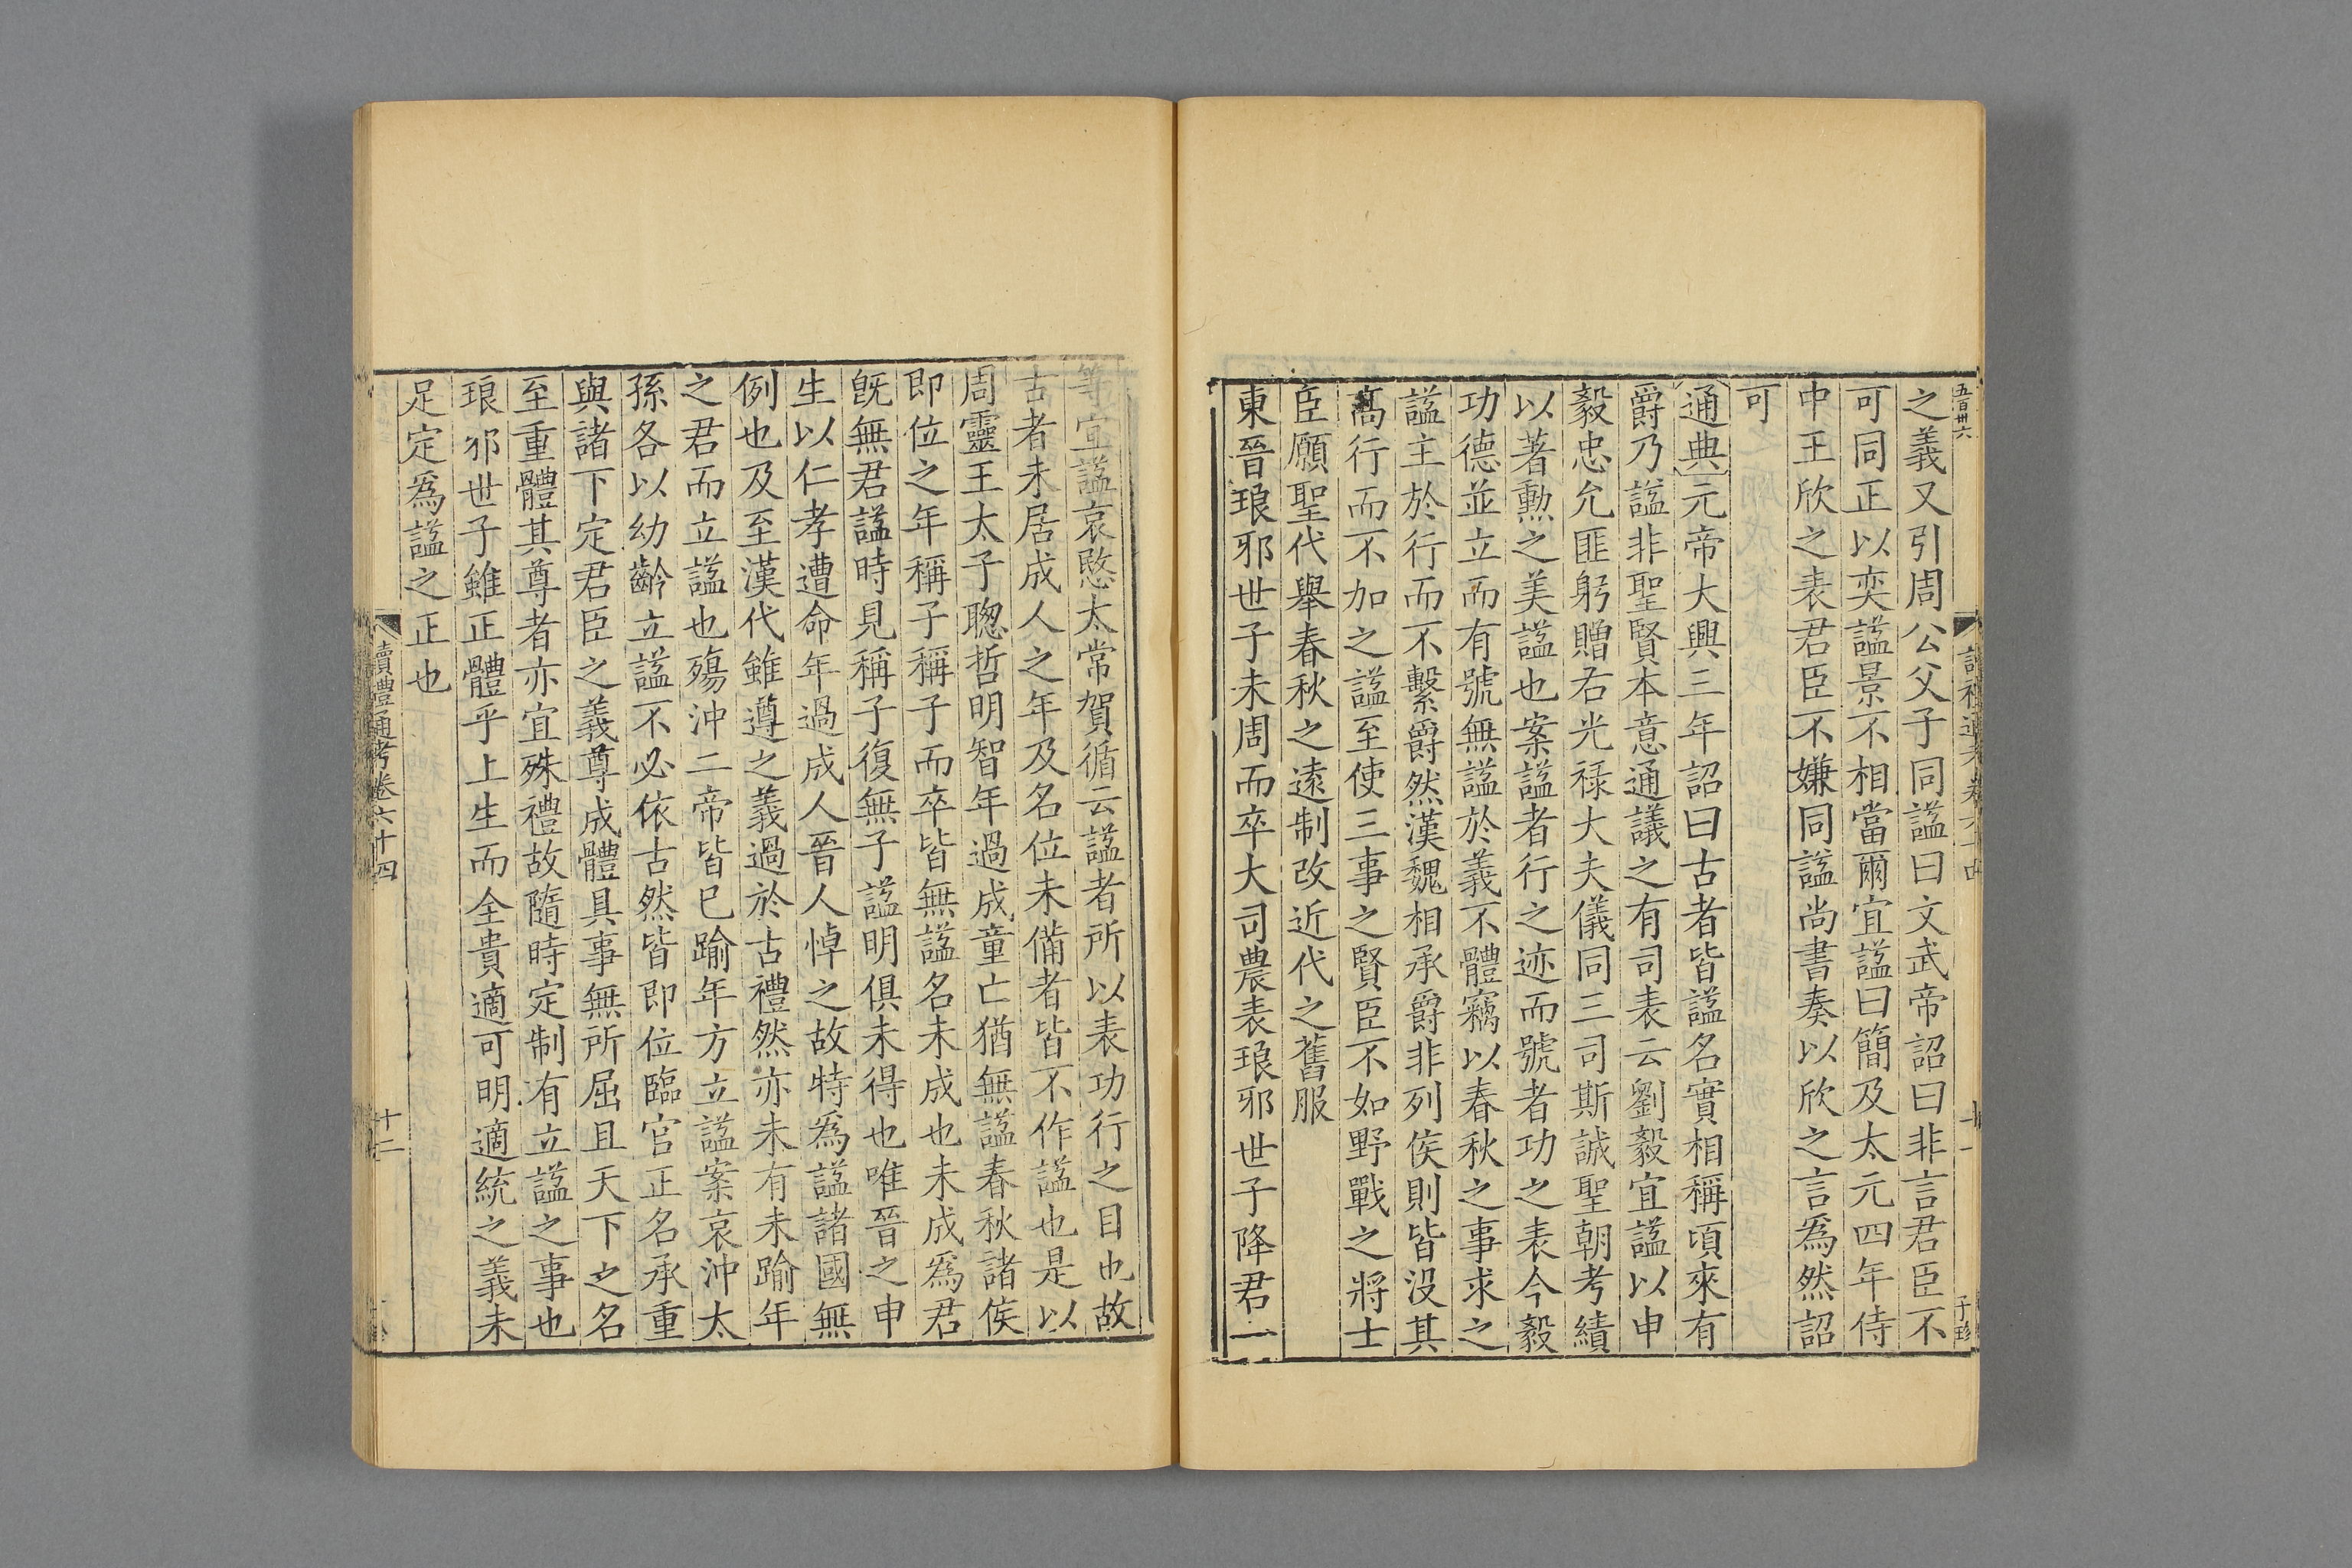 五百卅六
之義又引周公父子同諡曰文武帝詔曰非言君臣不
可同正以奕諡景不相當爾宜諡曰簡及太元四年侍
中王欣之表君臣不嫌同諡尚書奏以欣之言爲然詔
可
通典元帝大興三年詔曰古者皆諡名實相稱頃來有
爵乃諡非聖賢本意通議之有司表云劉毅宜諡以申
毅忠允匪躬贈右光祿大夫儀同三司斯誠聖朝考績
以著勲之美諡也案諡者行之迹而號者功之表今毅
功德並立而有號無諡於義不體竊以春秋之事求之
諡主於行而不繫爵然漢魏相承爵非列侯則皆没其
高行而不加之諡至使三事之賢臣不如野戰之將士
臣願聖代舉春秋之遠制改近代之舊服
東晉琅邪世子未周而卒大司農表琅邪世子降君一
十一
子珍
等宜諡哀愍太常賀循云諡者所以表功行之目也故
古者未居成人之年及名位未備者皆不作諡也是以
周靈王太子聰哲明智年過成童亡猶無諡春秋諸侯
即位之年稱子稱子而卒皆無諡名未成也未成爲君
旣無君諡時見稱子復無子諡明俱未得也唯晉之申
生以仁孝遭命年過成人晉人悼之故特爲諡諸國無
例也及至漢代雖遵之義過於古禮然亦未有未踰年
之君而立諡也殤沖二帝皆已踰年方立諡案哀沖太
孫各以幼齡立諡不必依古然皆即位臨官正名承重
與諸下定君臣之義尊成體具事無所屈且天下之名
至重體其尊者亦宜殊禮故隨時定制有立諡之事也
琅邪世子雖正體乎上生而全貴適可明適統之義未
足定爲諡之正也
讀禮通考卷六十四
十二